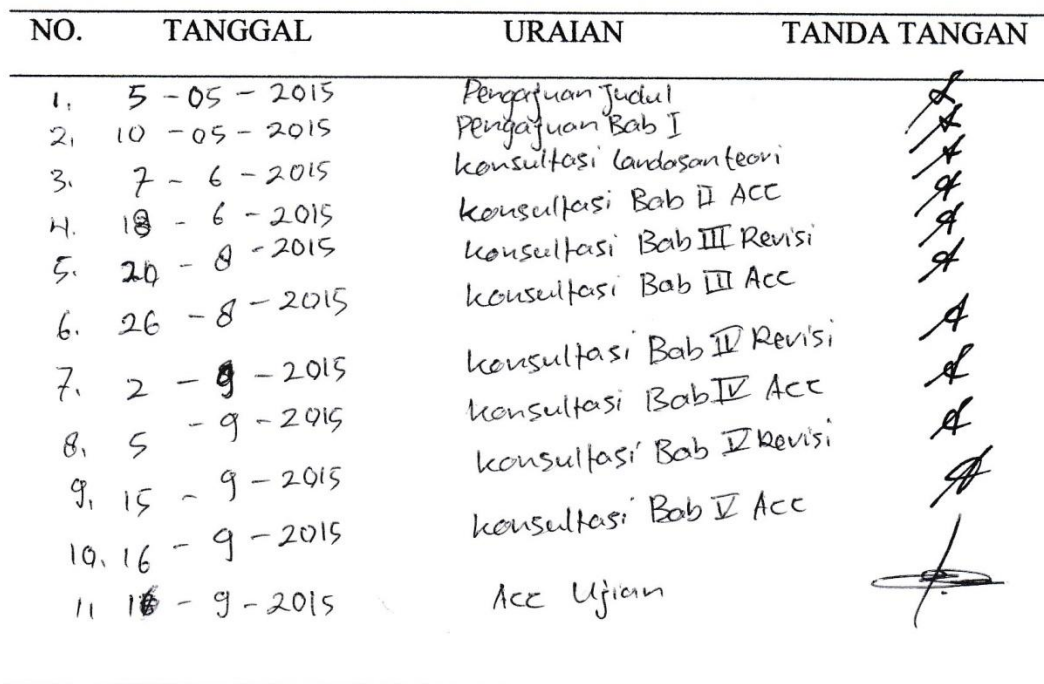 NO. TANGGAL URAIAN TANDA TANGAN
1. 5 - 05 - 2015 Pengajuan Judul
2. 10 - 05 - 2015 Pengajuan Bab I
3. 7 - 6 - 2015 konsultasi landasan teori
4. 18 - 6 - 2015 konsultasi Bab II Acc
5. 20 - 8 - 2015 konsultasi Bab III Revisi
6. 26 - 8 - 2015 konsultasi Bab III Acc
7. 2 - 9 - 2015 konsultasi Bab IV Revisi
8. 5 - 9 - 2015 konsultasi Bab IV Acc
9. 15 - 9 - 2015 konsultasi Bab V Revisi
10. 16 - 9 - 2015 konsultasi Bab V Acc
11 - 9 - 2015 Acc Ujian